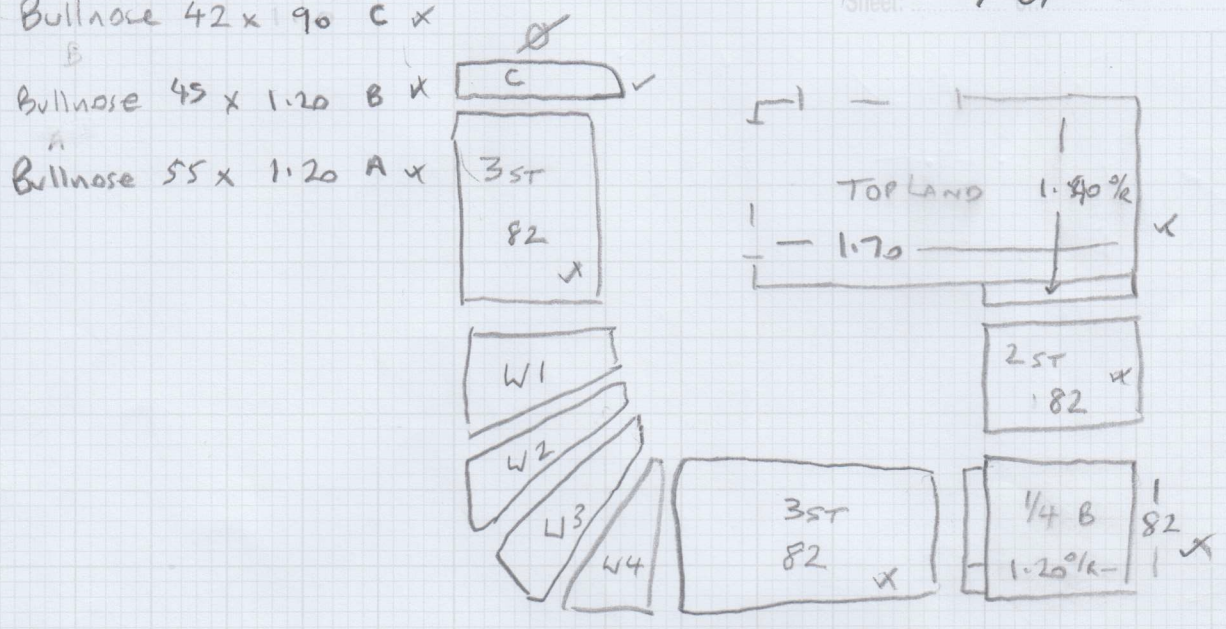 Bullnose 42 x 90 C x
B
Bullnose 45 x 1.20 B x
A
Bullnose 55 x 1.20 A x
Ø
C
3 ST
82
W1
W2
W3
W4
3ST
82
TOP LAND
1.70
2 ST
82
1/4 B
1.20 O/R
82
Sheet: